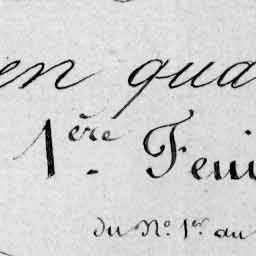 en qua
1ère Feui
du N° 1er au